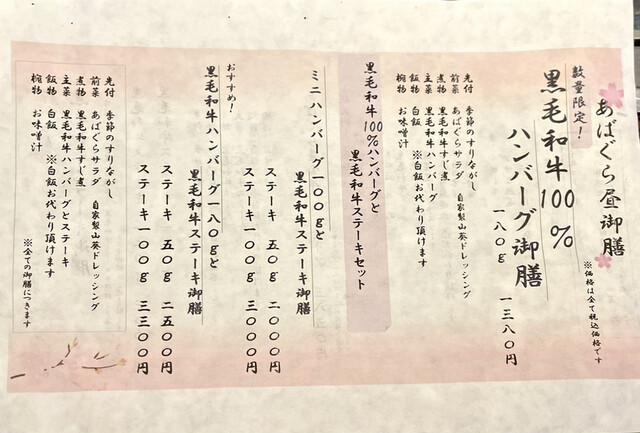 あばぐら昼御膳
※価格は全て税込価格です
数量限定!
黒毛和牛100%
ハンバーグ御膳
一八〇g 一三八〇円
先付 季節のすりながし
前菜 あばぐらサラダ 自家製山葵ドレッシング
煮物 黒毛和牛すじ煮
主菜 黒毛和牛ハンバーグ
飯物 白飯 ※白飯お代わり頂けます
椀物 お味噌汁
黒毛和牛100%ハンバーグと
黒毛和牛ステーキセット
ミニハンバーグ一〇〇gと
黒毛和牛ステーキ御膳
ステーキ 五〇g 二〇〇〇円
ステーキ一〇〇g 三〇〇〇円
おすすめ!
黒毛和牛ハンバーグ一八〇gと
黒毛和牛ステーキ御膳
ステーキ 五〇g 二五〇〇円
ステーキ一〇〇g 三三〇〇円
先付 季節のすりながし
前菜 あばぐらサラダ 自家製山葵ドレッシング
煮物 黒毛和牛すじ煮
主菜 黒毛和牛ハンバーグとステーキ
飯物 白飯 ※白飯お代わり頂けます
椀物 お味噌汁
※全ての御膳につきます